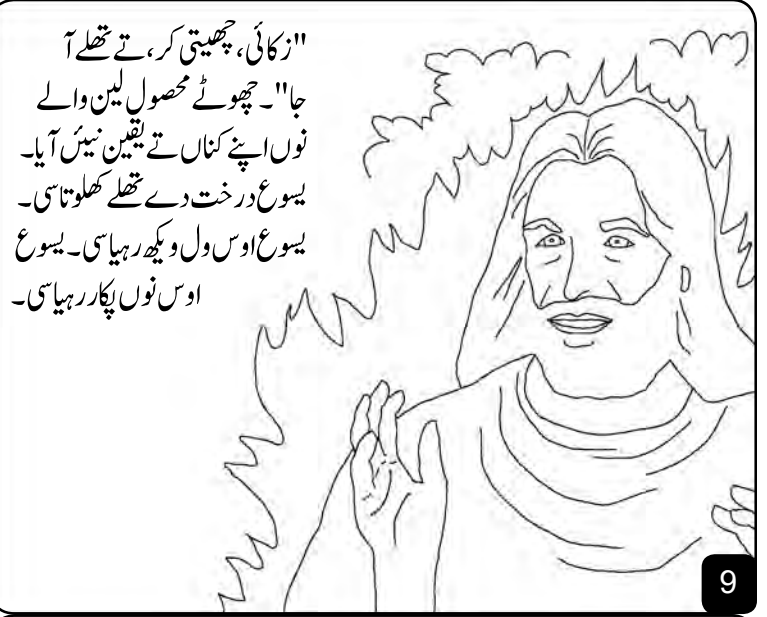 "زکائی، چھیتی کر، تے تھلے آ
جا"۔ چھوٹے محصول لین والے
نوں اپنے کناں تے یقین نیئں آیا۔
یسوع درخت دے تھلے کھلوتا سی۔
یسوع اوس ول ویکھ رہیا سی۔ یسوع
اوس نوں پکار رہیا سی۔
9